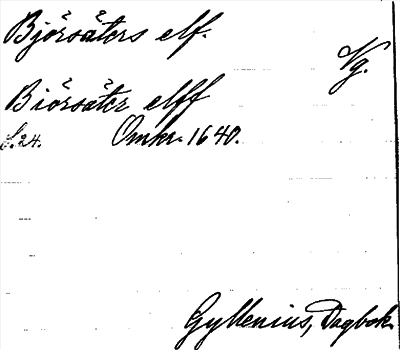 Björsäters elf.
Vg.
Biörsäter elff
S. 24. Omkr. 1640.
Gyllenius, Dagbok.